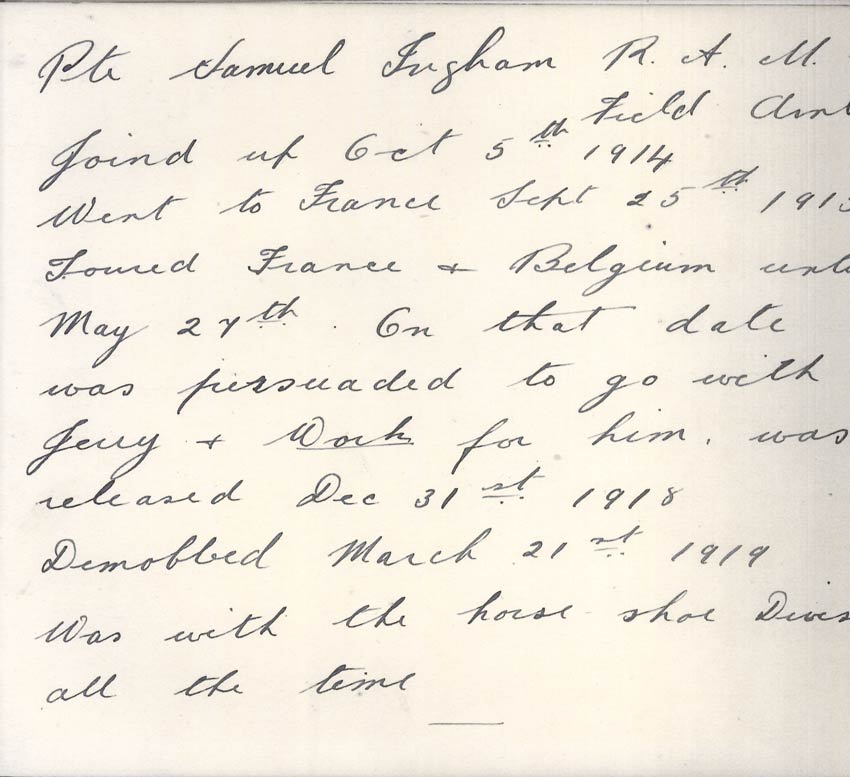 Pte Samuel Ingham R. A. M.
Field Amb
Joind up Oct 5th 1914
Went to France Sept 25th 191
Toured France & Belgium unti
May 27th. On that date
was persuaded to go with
Jerry & Work for him. was
released Dec 31st 1918
Demobbed March 21st 1919
Was with the horse shoe Divis
all the time